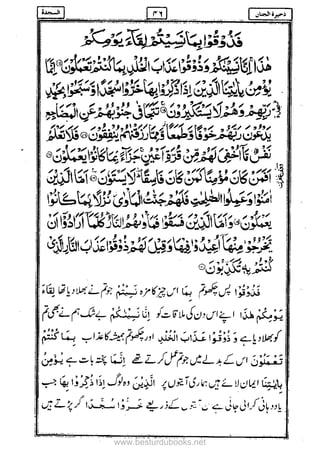 ذخيرة الجنان
٣٦
السجدة
فَذُوْقُوْا بِمَا نَسِيْتُمْ لِقَآءَ يَوْمِكُمْ
هٰذَا ۚ اِنَّا نَسِيْنٰكُمْ وَذُوْقُوْا عَذَابَ الْخُلْدِ بِمَا كُنْتُمْ تَعْمَلُوْنَ ۝ اِنَّمَا
يُؤْمِنُ بِاٰيٰتِنَا الَّذِيْنَ اِذَا ذُكِّرُوْا بِهَا خَرُّوْا سُجَّدًا وَّسَبَّحُوْا بِحَمْدِ
رَبِّهِمْ وَهُمْ لَا يَسْتَكْبِرُوْنَ ۝ تَتَجَافٰى جُنُوْبُهُمْ عَنِ الْمَضَاجِعِ
يَدْعُوْنَ رَبَّهُمْ خَوْفًا وَّطَمَعًا وَّمِمَّا رَزَقْنٰهُمْ يُنْفِقُوْنَ ۝ فَلَا تَعْلَمُ
نَفْسٌ مَّآ اُخْفِيَ لَهُمْ مِّنْ قُرَّةِ اَعْيُنٍ ۚ جَزَآءً بِمَا كَانُوْا يَعْمَلُوْنَ ۝
اَفَمَنْ كَانَ مُؤْمِنًا كَمَنْ كَانَ فَاسِقًا ؕ لَا يَسْتَوٗنَ ۝ اَمَّا الَّذِيْنَ
اٰمَنُوْا وَعَمِلُوا الصّٰلِحٰتِ فَلَهُمْ جَنّٰتُ الْمَاْوٰى نُزُلًا بِمَا كَانُوْا
يَعْمَلُوْنَ ۝ وَاَمَّا الَّذِيْنَ فَسَقُوْا فَمَاْوٰىهُمُ النَّارُ ؕ كُلَّمَآ اَرَادُوْٓا اَنْ
يَّخْرُجُوْا مِنْهَآ اُعِيْدُوْا فِيْهَا وَقِيْلَ لَهُمْ ذُوْقُوْا عَذَابَ النَّارِ الَّذِيْ
كُنْتُمْ بِهٖ تُكَذِّبُوْنَ ۝
فَذُوْقُوْا پس چکھو تم بِمَا اس چیز کا مزہ نَسِيْتُمْ جو تم نے بھلا دیا تھا لِقَآءَ
يَوْمِكُمْ هٰذَا اپنے اس دن کی ملاقات کو اِنَّا نَسِيْنٰكُمْ بے شک ہم نے بھی تم
کو بھلا دیا ہے وَذُوْقُوْا عَذَابَ الْخُلْدِ اور چکھو تم ہمیشہ کا عذاب بِمَا كُنْتُمْ
تَعْمَلُوْنَ اس کے بدلے میں جو تم عمل کرتے تھے اِنَّمَا پختہ بات ہے يُؤْمِنُ
بِاٰيٰتِنَا ایمان لاتے ہیں ہماری آیتوں پر الَّذِيْنَ وہ لوگ اِذَا ذُكِّرُوْا بِهَا جب
یاد دہانی کرائی جاتی ہے ان آیتوں کے ذریعے خَرُّوْا سُجَّدًا گر پڑتے ہیں
www.besturdubooks.net